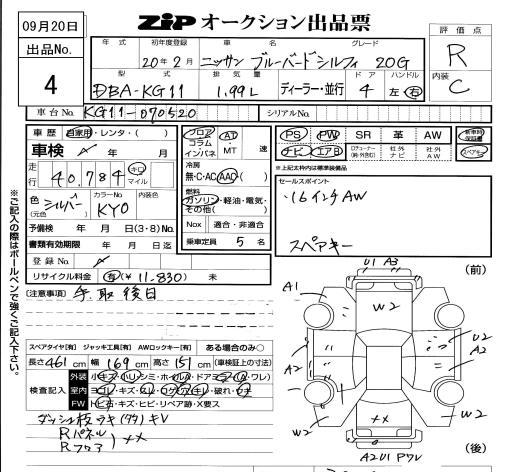 09月20日
ZIP オークション出品票
出品No.
4
年式 初年度登録 車名 グレード
20年2月 ニッサン ブルーバードシルフィ 20G
型式 排気量 ディーラー・並行 ドア ハンドル
DBA-KG11 1.99L 4 左・右
評価点
R
内装
C
車台No. KG11-070520
シリアルNo.
車歴 自家用・レンタ・( )
車検 年 月
走行 40.784 キロ マイル
色 シルバー カラーNo. KY0 内装色
(元色)
予備検 年 月 日(3・8)No.
書類有効期限 年 月 日迄
登録No.
リサイクル料金 有(¥ 11.830) 未
フロア AT
コラム
インパネ MT 速
冷房
無・C・AC・AAC( )
燃料
ガソリン・軽油・電気・
その他( )
Nox 適合・非適合
乗車定員 5 名
PS PW SR 革 AW 新車時保証書
ナビ エアB 社外ナビ 社外AW スペアキー
※上記太枠内は標準装備品
セールスポイント
・16インチAW
スペアキー
[注意事項] 手取後日
スペアタイヤ[有] ジャッキ工具[有] AWロックキー[有] ある場合のみ○
長さ 461 cm 幅 169 cm 高さ 151 cm (車検証上の寸法)
検査記入
外装
室内
FW トビ石・キズ・ヒビ・リペア跡・X要ス
ダッシュ板
Rパネル
Rフロア
XX
※ご記入の際はボールペンで強くご記入下さい。
(前)
U1 A3
A1
W2
U2
A2
A2
W2
XX
W2
A2U1 Pワレ
(後)